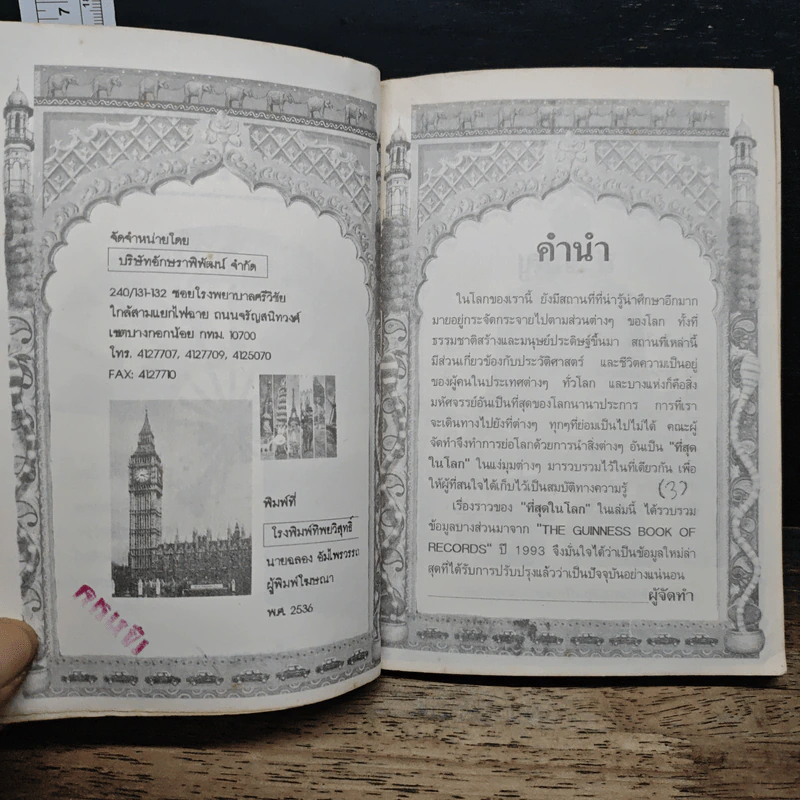 จัดจำหน่ายโดย
บริษัทอักษราพิพัฒน์ จำกัด
240/131-132 ซอยโรงพยาบาลศรีวิชัย
ใกล้สามแยกไฟฉาย ถนนจรัญสนิทวงศ์
เขตบางกอกน้อย กทม. 10700
โทร. 4127707, 4127709, 4125070
FAX: 4127710
พิมพ์ที่
โรงพิมพ์ทิพยวิสุทธิ์
นายฉลอง อัมไพรวรรณ
ผู้พิมพ์โฆษณา
พ.ศ. 2536
คำนำ
ในโลกของเรานี้ ยังมีสถานที่ที่น่ารู้น่าศึกษาอีกมาก
มายอยู่กระจัดกระจายไปตามส่วนต่างๆ ของโลก ทั้งที่
ธรรมชาติสร้างและมนุษย์ประดิษฐ์ขึ้นมา สถานที่เหล่านี้
มีส่วนเกี่ยวข้องกับประวัติศาสตร์ และชีวิตความเป็นอยู่
ของผู้คนในประเทศต่างๆ ทั่วโลก และบางแห่งก็คือสิ่ง
มหัศจรรย์อันเป็นที่สุดของโลกนานาประการ การที่เรา
จะเดินทางไปยังที่ต่างๆ ทุกๆที่ย่อมเป็นไปไม่ได้ คณะผู้
จัดทำจึงทำการย่อโลกด้วยการนำสิ่งต่างๆ อันเป็น "ที่สุด
ในโลก" ในแง่มุมต่างๆ มารวบรวมไว้ในที่เดียวกัน เพื่อ
ให้ผู้ที่สนใจได้เก็บไว้เป็นสมบัติทางความรู้ (3)
เรื่องราวของ "ที่สุดในโลก" ในเล่มนี้ ได้รวบรวม
ข้อมูลบางส่วนมาจาก "THE GUINNESS BOOK OF
RECORDS" ปี 1993 จึงมั่นใจได้ว่าเป็นข้อมูลใหม่ล่า
สุดที่ได้รับการปรับปรุงแล้วว่าเป็นปัจจุบันอย่างแน่นอน
ผู้จัดทำ